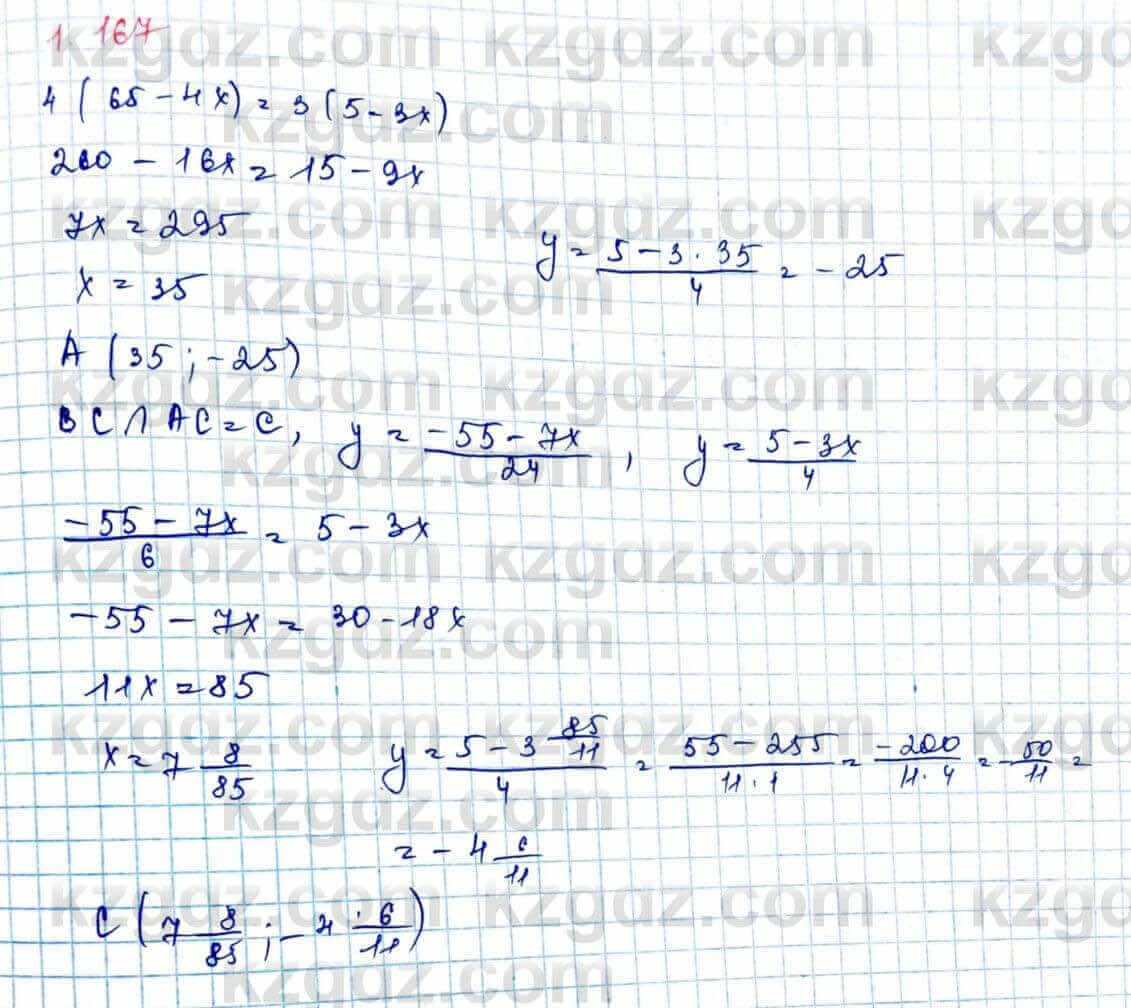 1. 167
4 (65 - 4x) = 3 (5 - 3x)
260 - 16x = 15 - 9x
7x = 295
x = 35
y = \frac{5 - 3 \cdot 35}{4} = -25
A (35 ; -25)
BC ∩ AC = C, y = \frac{-55 - 7x}{24} , y = \frac{5 - 3x}{4}
\frac{-55 - 7x}{6} = 5 - 3x
-55 - 7x = 30 - 18x
11x = 85
x = 7 \frac{8}{85} y = \frac{5 - 3 \frac{85}{11}}{4} = \frac{55 - 255}{11 \cdot 1} = \frac{-200}{11 \cdot 4} = -\frac{50}{11} =
= -4 \frac{6}{11}
C (7 \frac{8}{85} ; -4 \frac{6}{11})
kzgdz.com